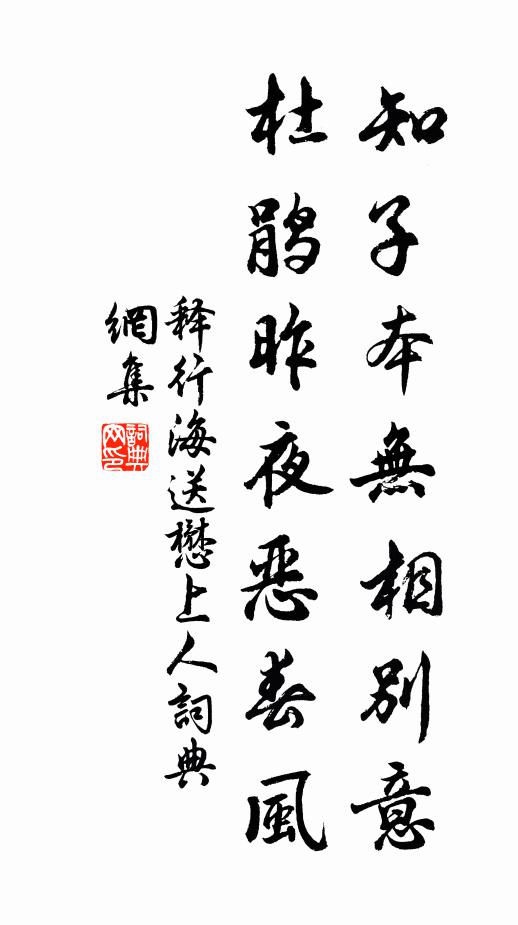 知子本無相别意
杜鹃昨夜恶春風
释行海送懋上人詞典
網集
詞典
网印